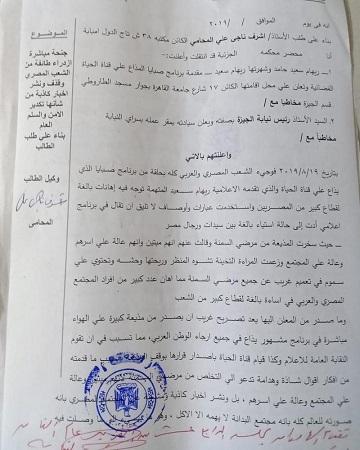 انه في يوم الموافق / /٢٠١٩
بناء على طلب الأستاذ/ اشرف ناجى علي المحامي الكائن مكتبه ٣٨ ش تاج الدول امبابة
أنا محضر محكمه الجزئية قد انتقلت وأعلنت:-
١- ريهام سعيد حامد وشهرتها ريهام سعيد – مقدمة برنامج صبايا المذاع علي قناة الحياة
الفضائية وتعلن علي محل اقامتها الكائن ١٧ شارع جامعة القاهرة بجوار مسجد
قسم الجيزة مخاطبا مع /
٢- السيد الأستاذ رئيس نيابة الجيزة بصفته ويعلن سيادته بمقر عمله بسراي النيابة
مخاطبا مع /
وأعلنتهم بالاتي
بتاريخ ٢٠١٩/٨/١٩ فوجيء الشعب المصري والعربي كله بحلقة من برنامج صبايا الذي
يذاع علي قناة الحياة والذي تقدمه الاعلامية ريهام سعيد المتهمة توجه فيه إهانات بالغة
لقطاع كبير من المصريين واستخدمت عبارات وأوصاف لا تليق ان تقال في برنامج
اعلامي أدت إلى حالة استياء بالغة بين سيدات ورجال مصر
– حيث سخرت المذيعة من مرضي السمنة وقالت عنهم انهم ميتين وانهم عالة علي اسرهم
وعالة علي المجتمع وزعمت المراءة التخينة تشوه المنظر وريحتها وحشه وتحتوي علي
سموم في تعميم غريب عن جميع مرضي السمنة مما اهان عدد كبير من افراد المجتمع
المصري والعربي في اساءة بالغة لقطاع كبير من الشعب
وما صدر من المعلن اليها يعد تصريح غريب ان يصدر من مذيعة كبيرة علي الهواء
مباشرة في برنامج مشهور يذاع في جميع ارجاء الوطن العربي، مما تسبب في ان تقوم
النقابة العامة للاعلام وكذا قيام قناة الحياة باصدار قرارها بوقف
من افكار اقوال شاذة وهدامة تدعو الي التخلص من مرضي
علي المجتمع وعالة علي اسرهم ، بل ونشر اخبار كاذبة
صورته للعالم كله بانه مجتمع البدانة لا يهمه الا الاكل ،
الموضوع
جنحة مباشرة
ازدراء طائفة من
الشعب المصري
وقذف ونشر
اخبار كاذبة من
شانها تكدير
الامن والسلم
العام
بناء علي طلب
الطالب
وكيل الطالب
المحامى